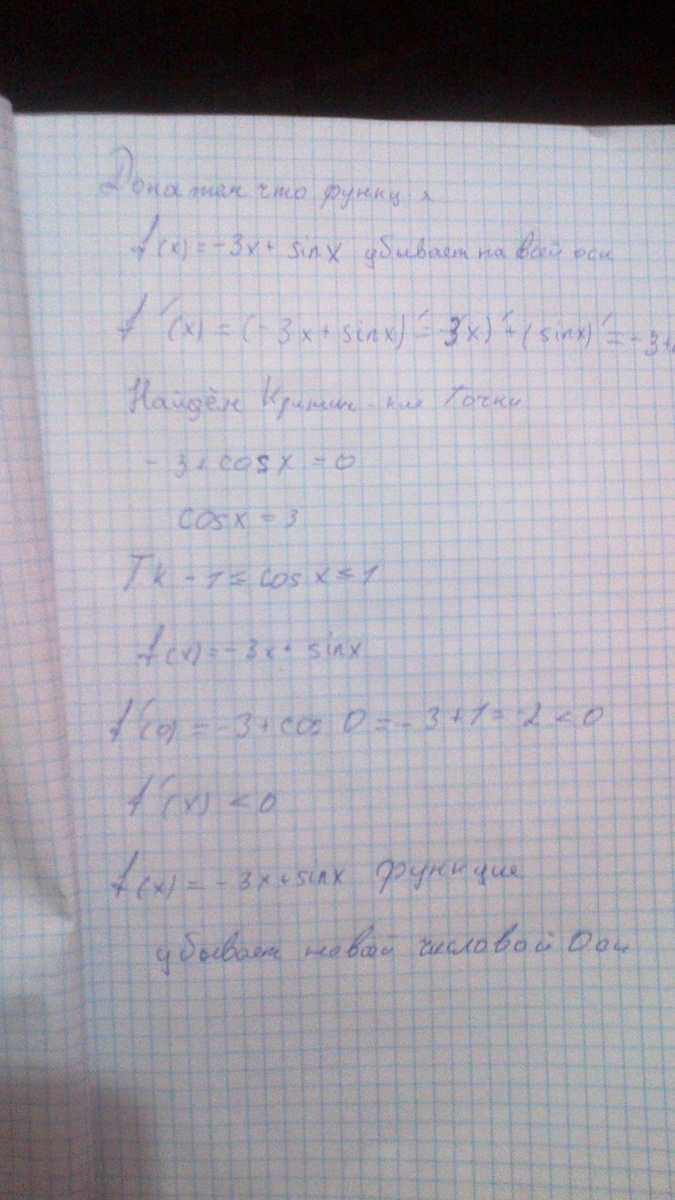 Докажем что функция
f(x) = -3x + sinx убывает на всей оси
f'(x) = (-3x + sinx)' = -3x)' + (sinx)' = -3+
Найдём Критич-кие Точки
-3 + cosx = 0
cosx = 3
Тк -1 ≤ cosx ≤ 1
f(x) = -3x + sinx
f'(0) = -3 + cos 0 = -3 + 1 = -2 < 0
f'(x) < 0
f(x) = -3x + sinx функция
убывает на всей числовой Оси